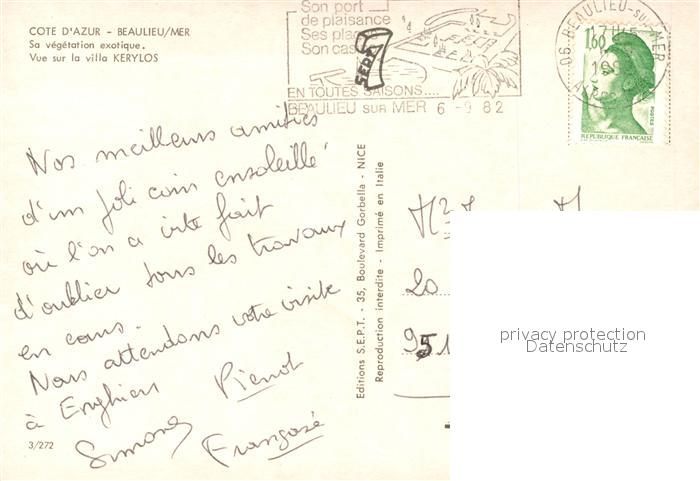 COTE D'AZUR - BEAULIEU/MER
Sa végétation exotique.
Vue sur la villa KERYLOS
Son port
de plaisance
Ses pla
Son cas
SEPT
EN TOUTES SAISONS....
BEAULIEU SUR MER 6-9 82
06 BEAULIEU-SUR-MER
17H15
1,60
POSTES
REPUBLIQUE FRANÇAISE
Nos meilleurs amitiés
d'un joli coin ensoleillé
où l'on a vite fait
d'oublier tous les travaux
en cours.
Nous attendons votre visite
à Enghien
Simone
3/272
Editions S.E.P.T. - 35, Boulevard Gorbella - NICE
Reproduction interdite - Imprimé en Italie
20
951
privacy protection
Datenschutz